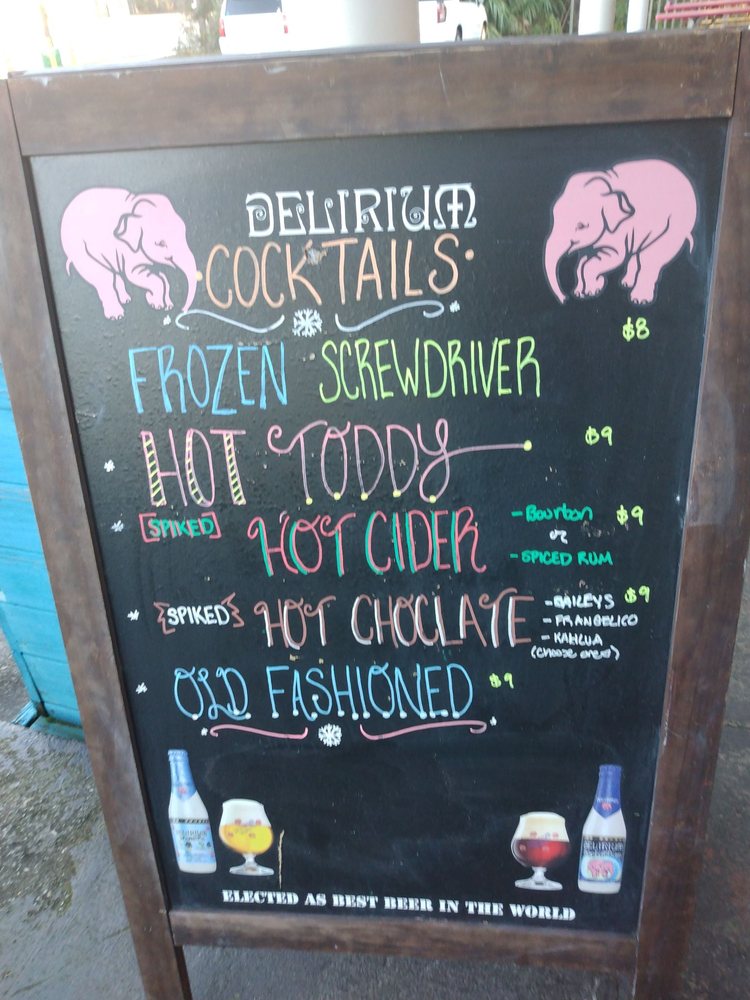 DELIRIUM
COCKTAILS
$8
FROZEN SCREWDRIVER
HOT TODDY $9
[SPIKED] HOT CIDER - Bourbon $9
or
- SPICED RUM
{SPIKED} HOT CHOCLATE - BAILEYS $9
- FRANGELICO
- KAHLUA
(choose one)
OLD FASHIONED $9
DELIRIUM
DELIRIUM
ELECTED AS BEST BEER IN THE WORLD